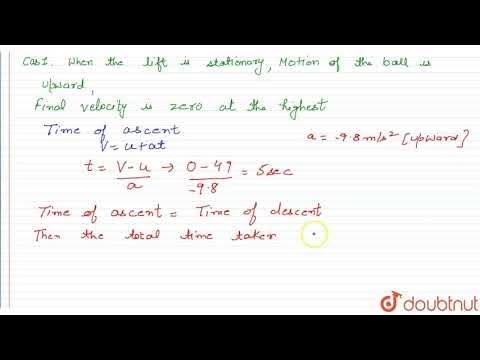 Cas I. When the lift is stationary, Motion of the ball is
upward,
Final velocity is zero at the highest
Time of ascent
V = u+at
a = -9.8 m/s² [upward]
t = V-u/a → 0-49/-9.8 = 5sec
Time of ascent = Time of descent
Then the total time taken :
doubtnut